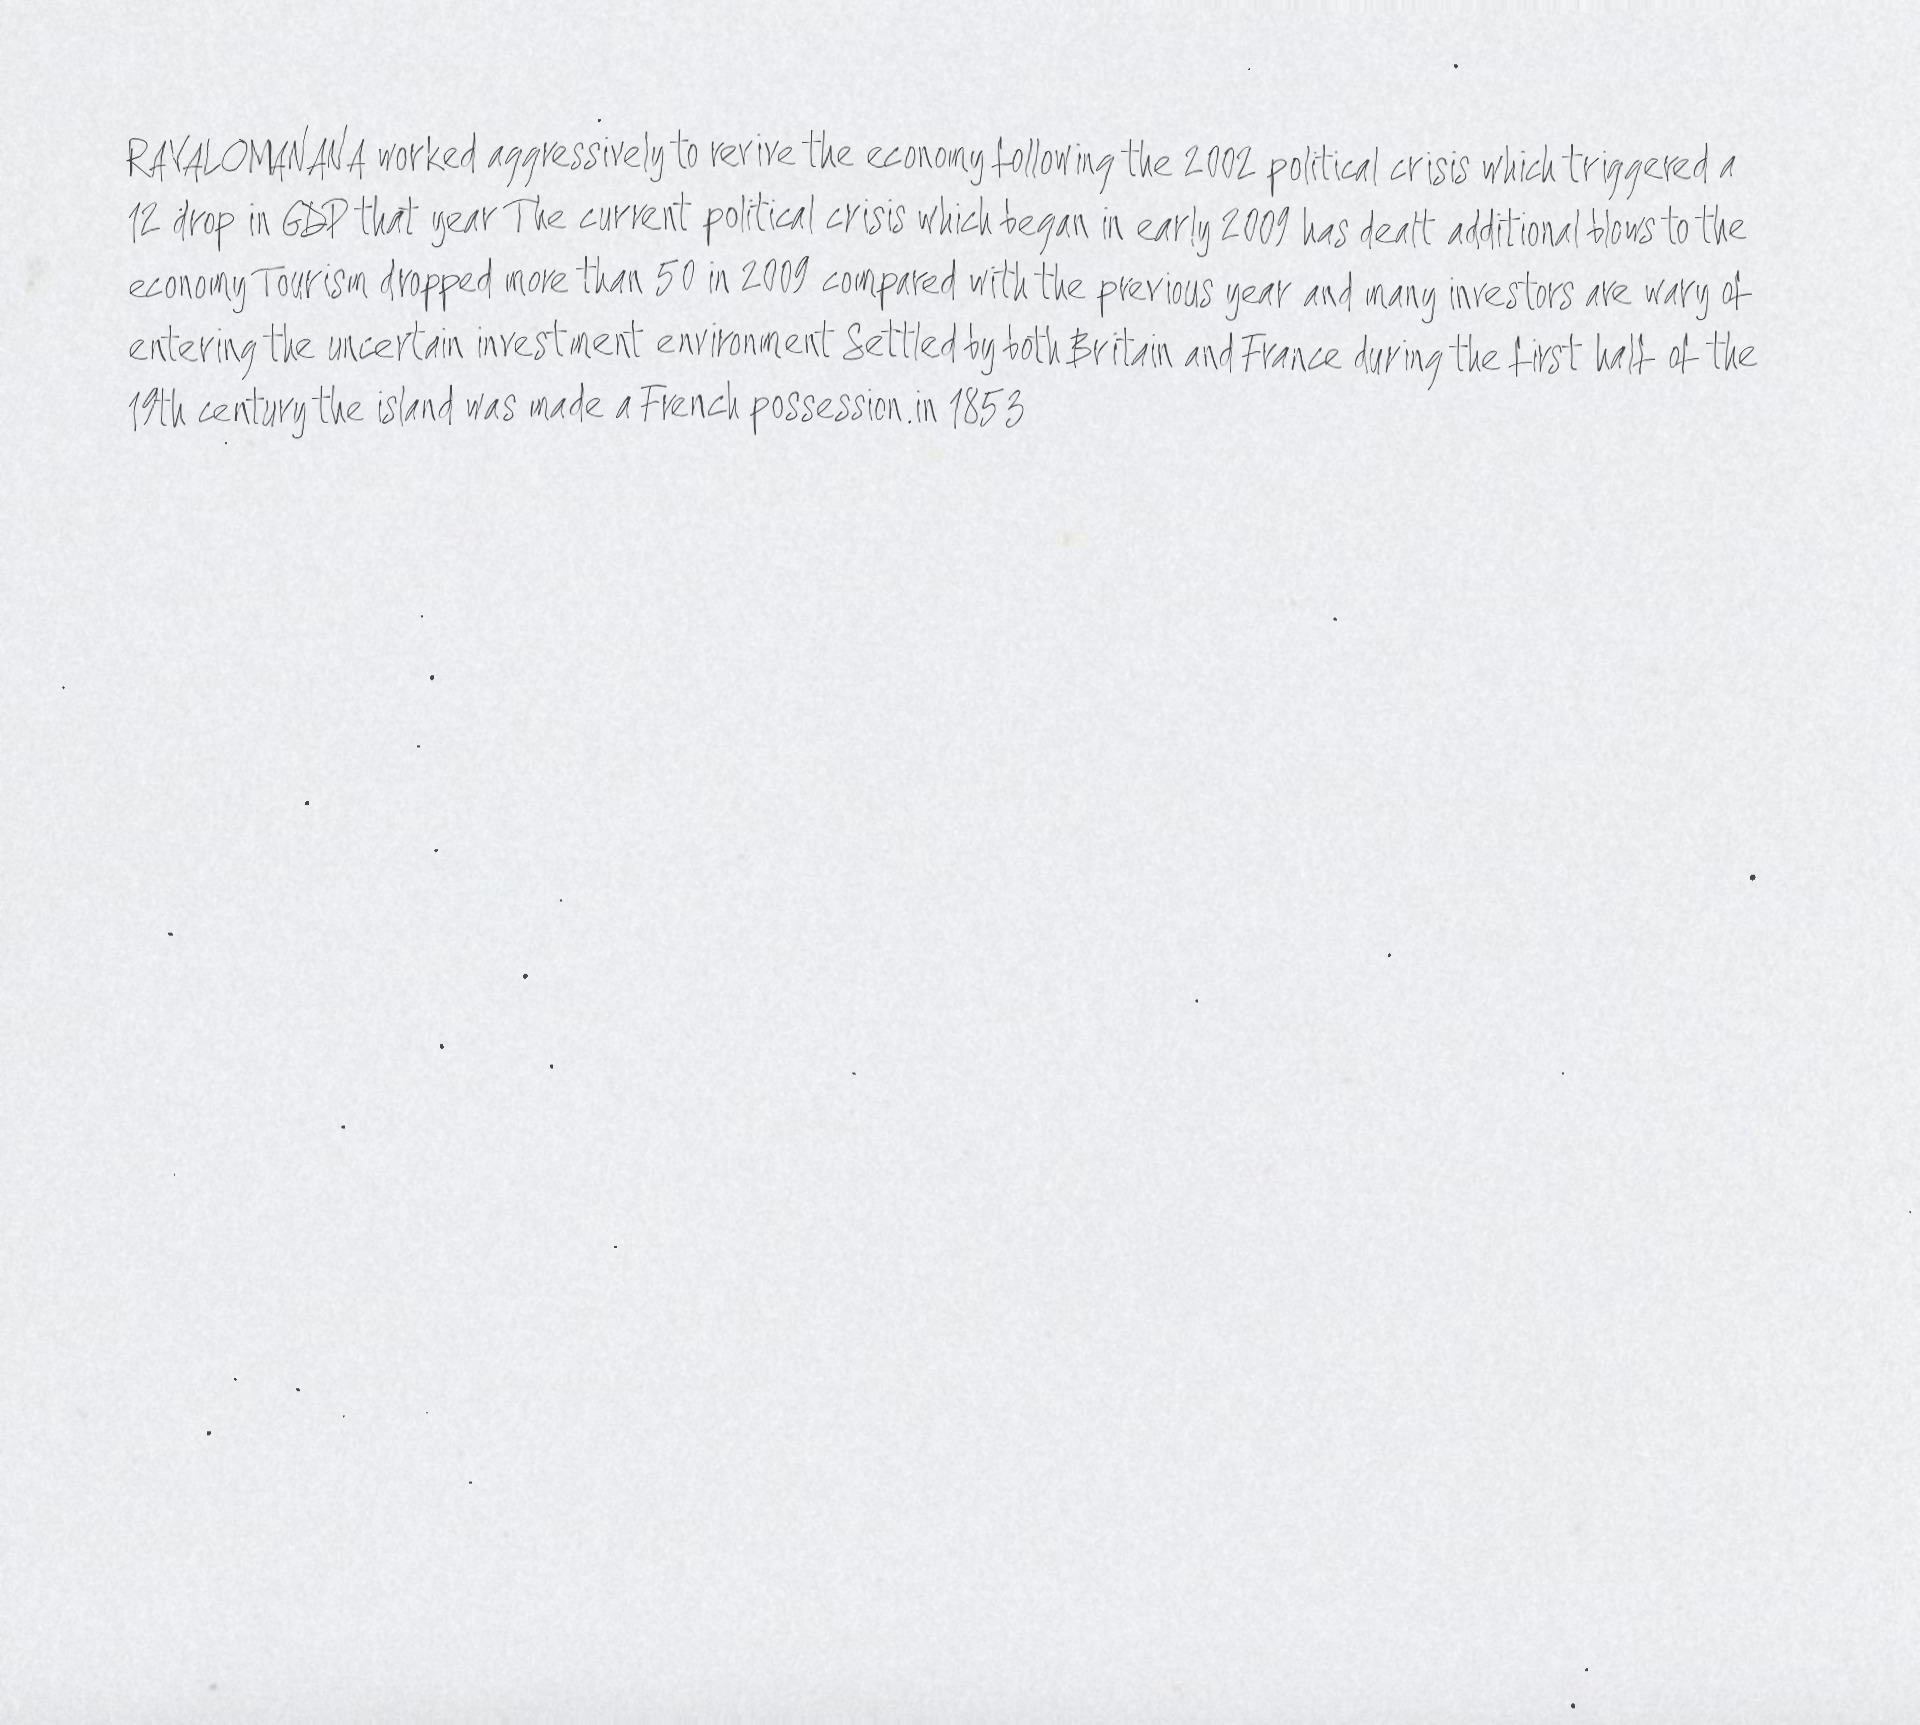 RAVALOMANANA worked aggressively to revive the economy following the 2002 political crisis which triggered a
12 drop in GDP that year The current political crisis which began in early 2009 has dealt additional blows to the
economy Tourism dropped more than 50 in 2009 compared with the previous year and many investors are wary of
entering the uncertain investment environment Settled by both Britain and France during the first half of the
19th century the island was made a French possession in 1853